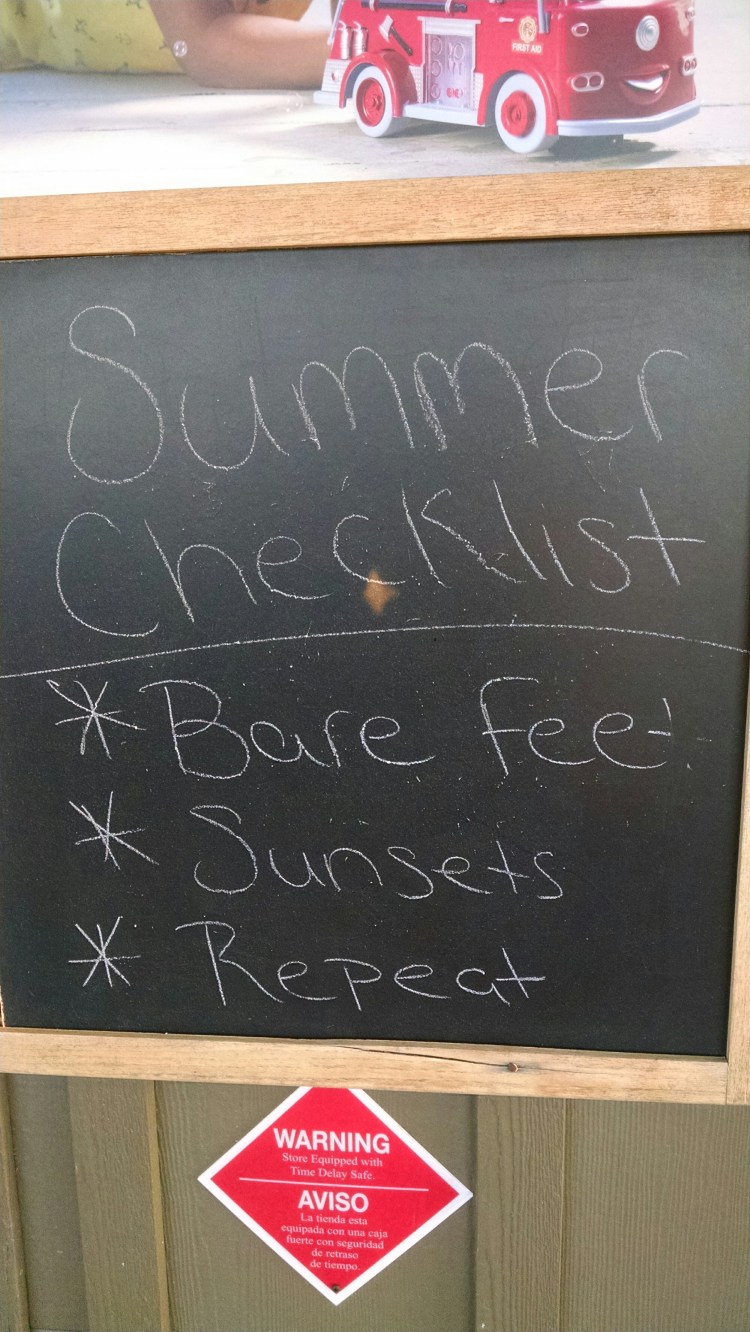 FIRST AID
Summer
Checklist
* Bare feet
* Sunsets
* Repeat
WARNING
Store Equipped with
Time Delay Safe.
AVISO
La tienda esta
equipada con una caja
fuerte con seguridad
de retraso
de tiempo.